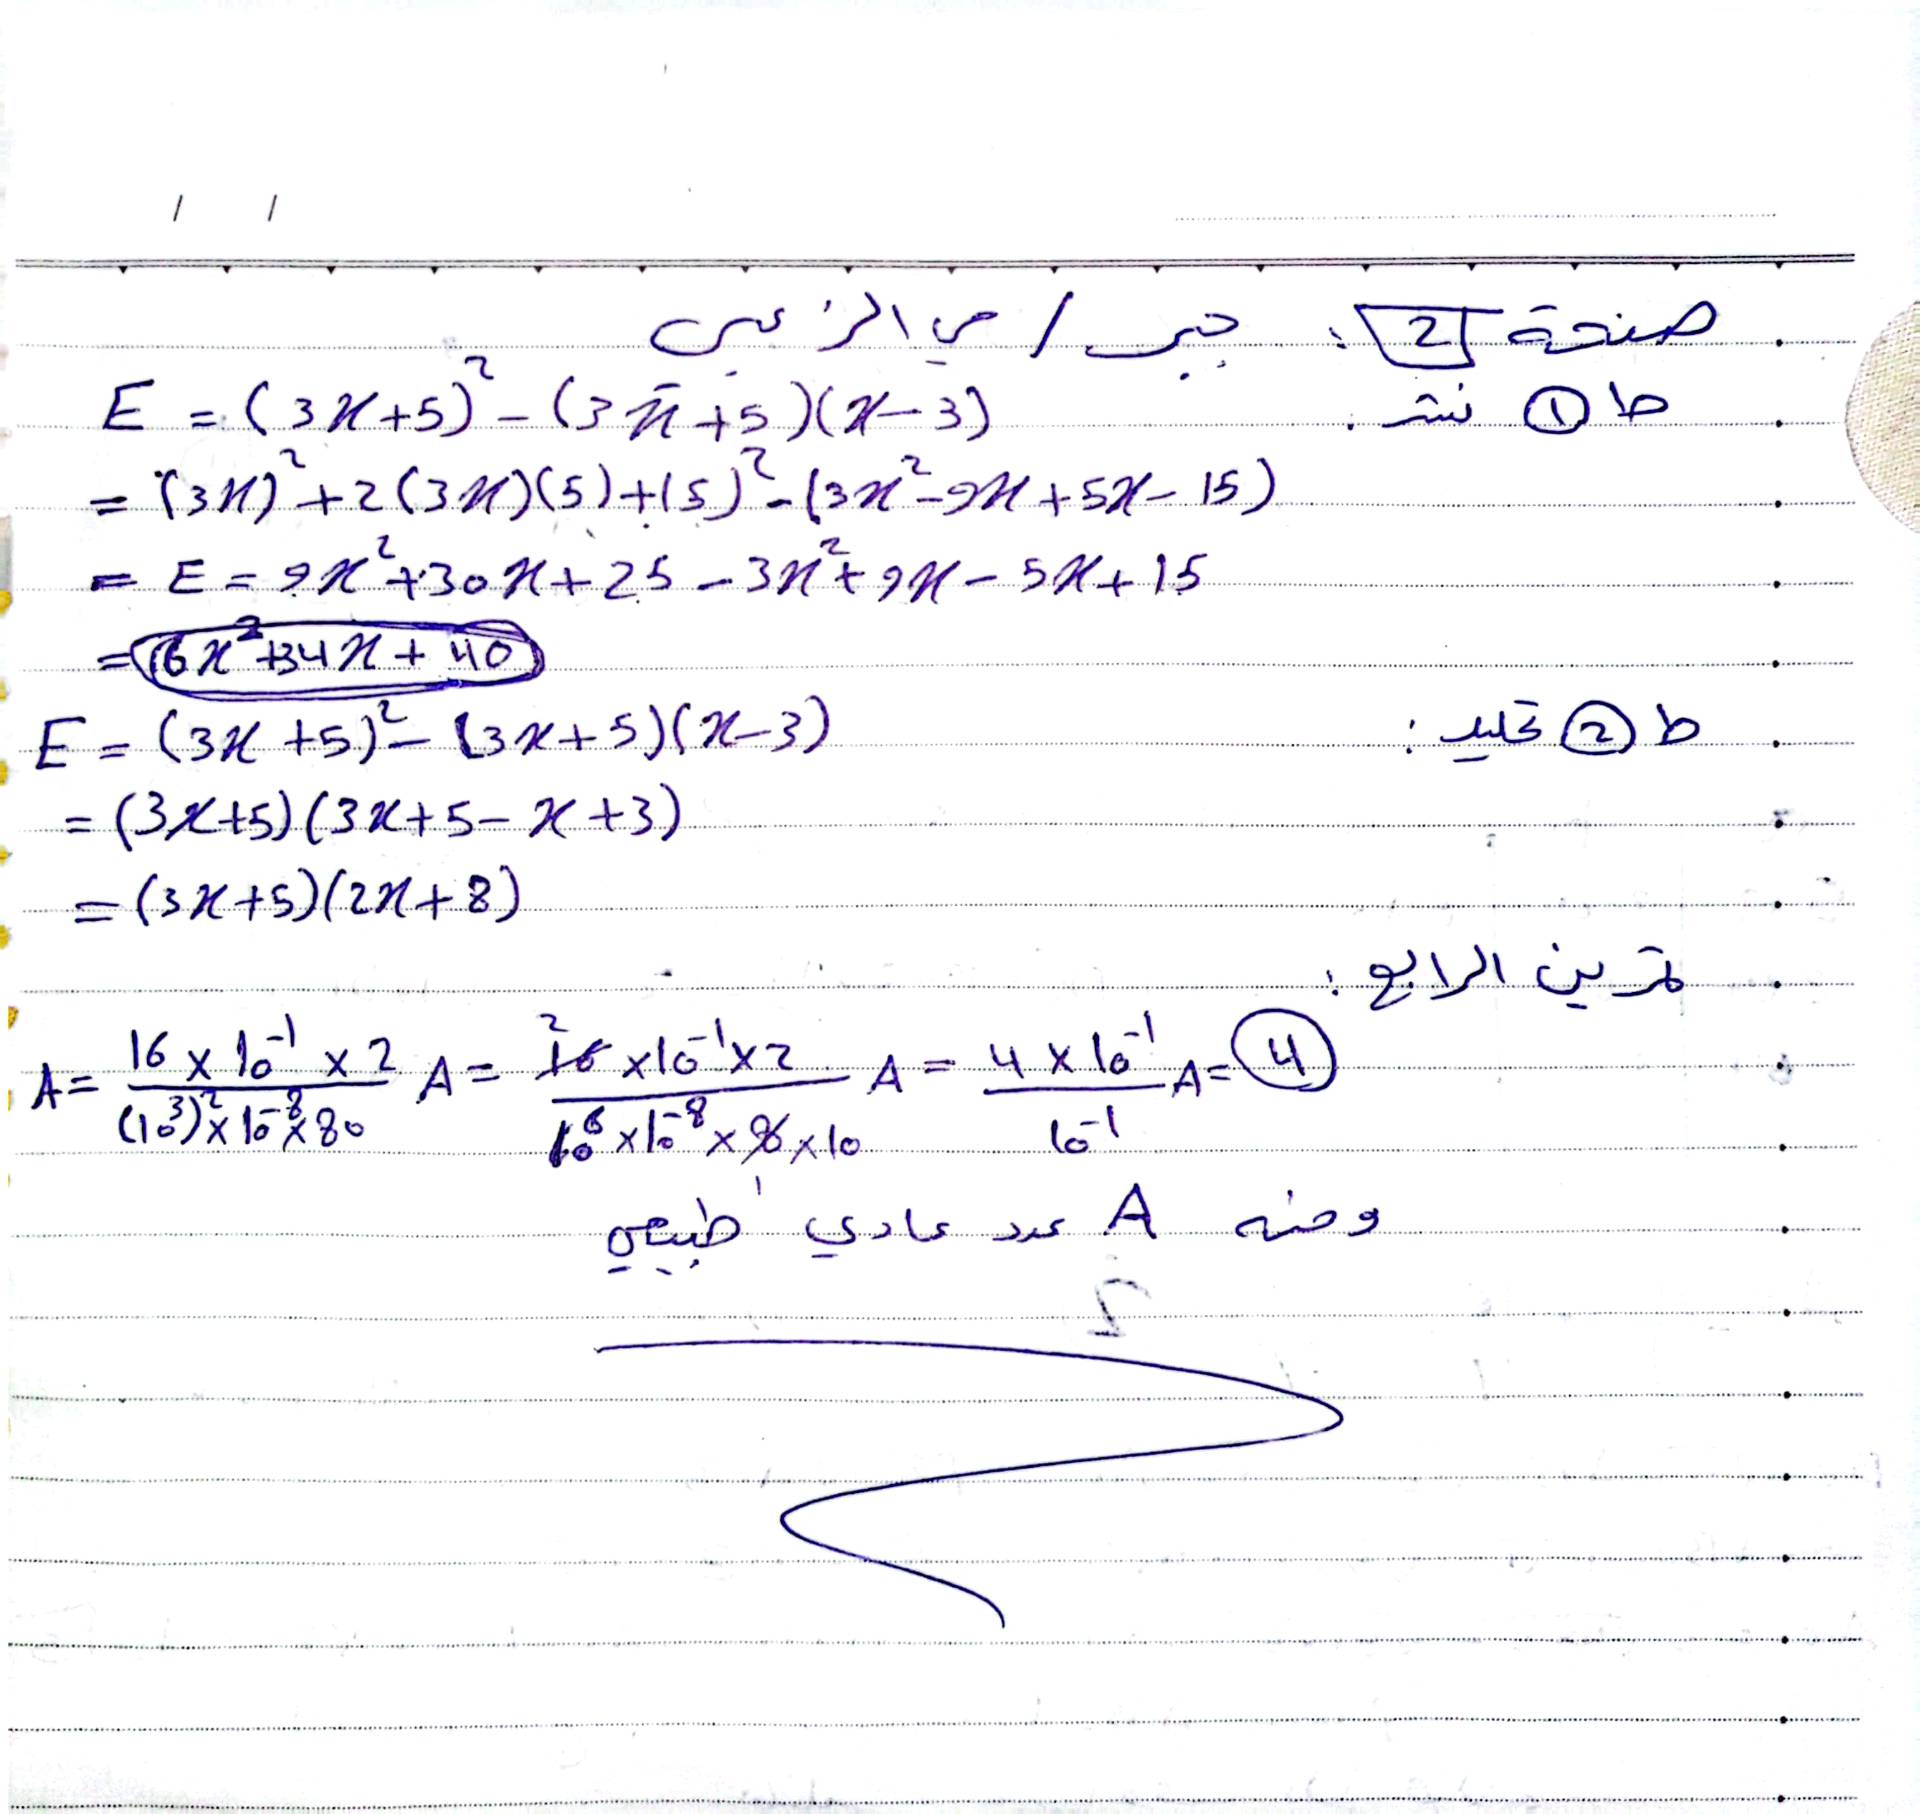 / /
صفحة 2 : جبر / مي الزعبي
ط ① نشر .
E = (3x+5)² - (3x+5)(x-3)
= (3x)² + 2(3x)(5) + (5)² - (3x² - 9x + 5x - 15)
= E = 9x² + 30x + 25 - 3x² + 9x - 5x + 15
= 6x² + 34x + 40
ط ② تحليل :
E = (3x+5)² - (3x+5)(x-3)
= (3x+5)(3x+5-x+3)
= (3x+5)(2x+8)
تمرين الرابع :
A = (16 × 10⁻¹ × 2) / ((10³)² × 10⁻⁸ × 80) A = (16 2 × 10⁻¹ × 2) / (10⁶ × 10⁻⁸ × 8 1 × 10) A = (4 × 10⁻¹) / 10⁻¹ A = 4
ومنه A عدد عادي طبيعي